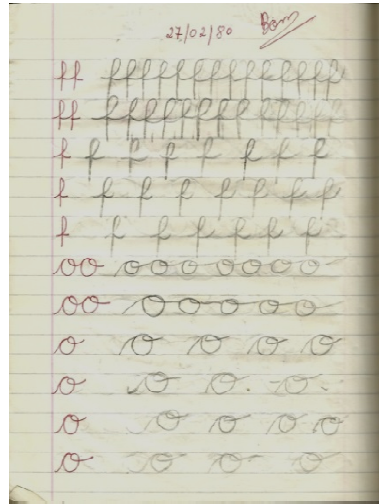 27/02/80 Bom
ff fffffffffffff
ff fffffffffffff
f f f f f f f f
f f f f f f f f
f f f f f f f
oo o o o o o o o
oo o o o o o
o o o o o
o o o o
o o o o o
o o o o